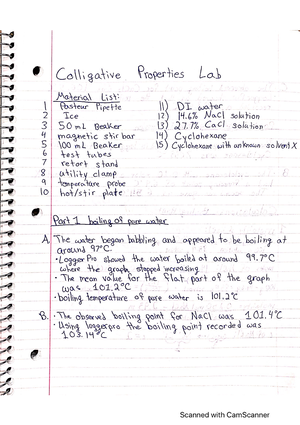 Colligative Properties Lab
Material List:
1 Pasteur Pipette
2 Ice
3 50 mL Beaker
4 magnetic stir bar
5 100mL Beaker
6 test tubes
7 retort stand
8 utility clamp
9 temperature probe
10 hot/stir plate
11) DI water
12) 14.6% NaCl solution
13) 27.7% CaCl solution
14) Cyclohexane
15) Cyclohexane with unknown solvent X
Part 1 boiling of pure water
A. The water began bubbling and appeared to be boiling at
around 97°C.
• Logger Pro showed the water boiled at around 99.7°C
where the graph stopped increasing
• The mean value for the flat part of the graph
was 101.2°C
• boiling temperature of pure water is 101.2°C
B. • The observed boiling point for NaCl was 101.4°C
• Using loggerpro the boiling point recorded was
103.14°C
Scanned with CamScanner